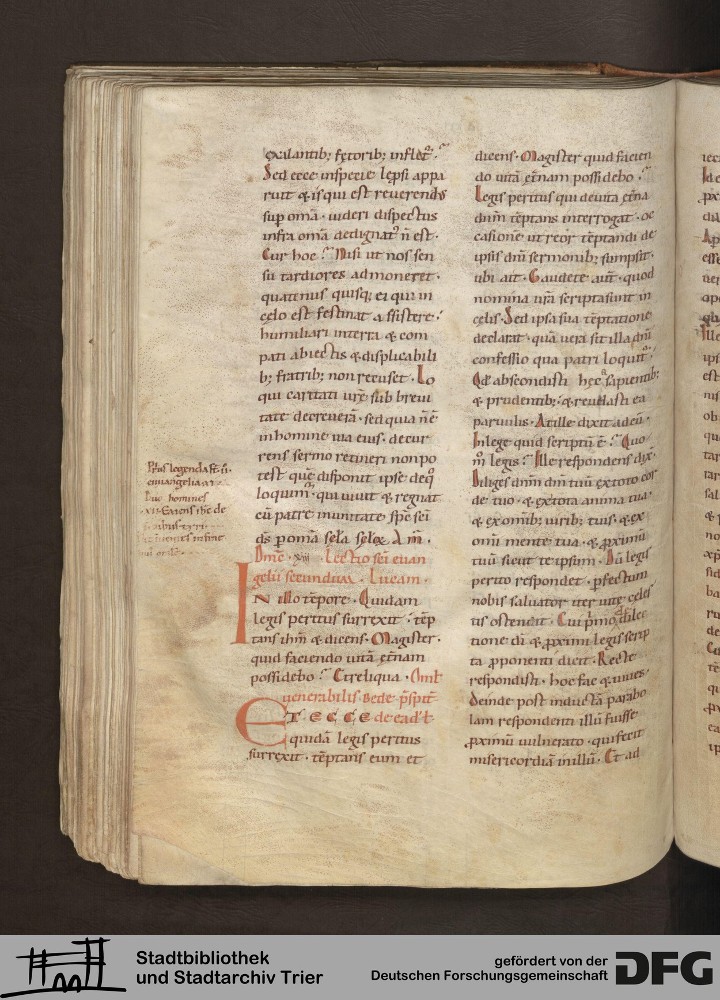 exalantib; fętorib; inflet᷑.
Sed ecce inspecie lępsi appa
ruit & isqui est reuerendus
sup omā. uideri dispectus
infra omā dedignat᷑ n̄ est.
Cur hoc? Nisi ut nos sen
su tardiores admoneret.
quatinus quisq; ei qui in
cęlo est festinat assistere.
humiliari interra & com
pati abiectis & displicabili
b; fratrib; non recuset. Lo
qui caritati urę sub breui
tate decreuerā. sed quia n̄ ē
inhomine uia eius. decur
rens sermo retineri nonpo
test quē disponit ipse deq̊
loquim᷑. qui uiuit & regnat
cū patre inunitate sp̄c sc̄i
ds̄ p omā sclā sclo℞. Am̄.
Dm̄c. xiiii. Lectio sc̄i euan
gelii secundum. Lucam.
IN illo tēpore. Quidam
legis peritus surrexit tēp
tans ihm̄ & dicens. Magister.
quid faciendo uitā ęt̄nam
possidebo? Et reliqua. Oml̄
uenerabilis Bede p̄sp̄it̄
ET ECCE de ead̄ l̄
quidā legis peritus
surrexit. tēptans eum et
Pius legendast. s.
euuangeliā.
Duo homines
xii. Exiens ihc de
dicens. Magister quid facien
do uitā ęt̄nam possidebo?
Legis peritus qui deuita ęt̄na
dnm̄ tēptans interrogat. oc
casionē ut reor tēptandi de
ipsis dn̄i sermonib; sumpsit.
ubi ait. Gaudete aut̄. quod
nomina ur̄a scriptasunt in
cęlis. Sed ipsa sua tēptatione
declarat. quā uera sit illa dn̄i
confessio qua patri loquit᷑.
Qd̄ abscondisti hęc a sapientib;
& prudentib; & reuelasti ea
paruulis. At ille dixit adeū.
Inlege quid scriptū ē? Quo
m̊ legis? Ille respondens dix̄.
Diliges dnm̄ dm̄ tuū extoto cor
de tuo. & extota anima tua.
& exomib; uirib; tuis. & ex
omi mente tua. & pximū
tuū sicut te ipsum. Dū legis
perito respondet. pfectum
nobis saluator iter uitę cęles
tis ostendit. Cui p̄mo de dilec
tione di & pximi legis scrip
ta pponenti dicit. Recte
respondisti. hoc fac & uiues.
Deinde post inductā parabo
lam respondenti illū fuisse
pximū uulnerato. qui fecit
misericordiā inillū. Et ad
Stadtbibliothek
und Stadtarchiv Trier
gefördert von der
Deutschen Forschungsgemeinschaft
DFG